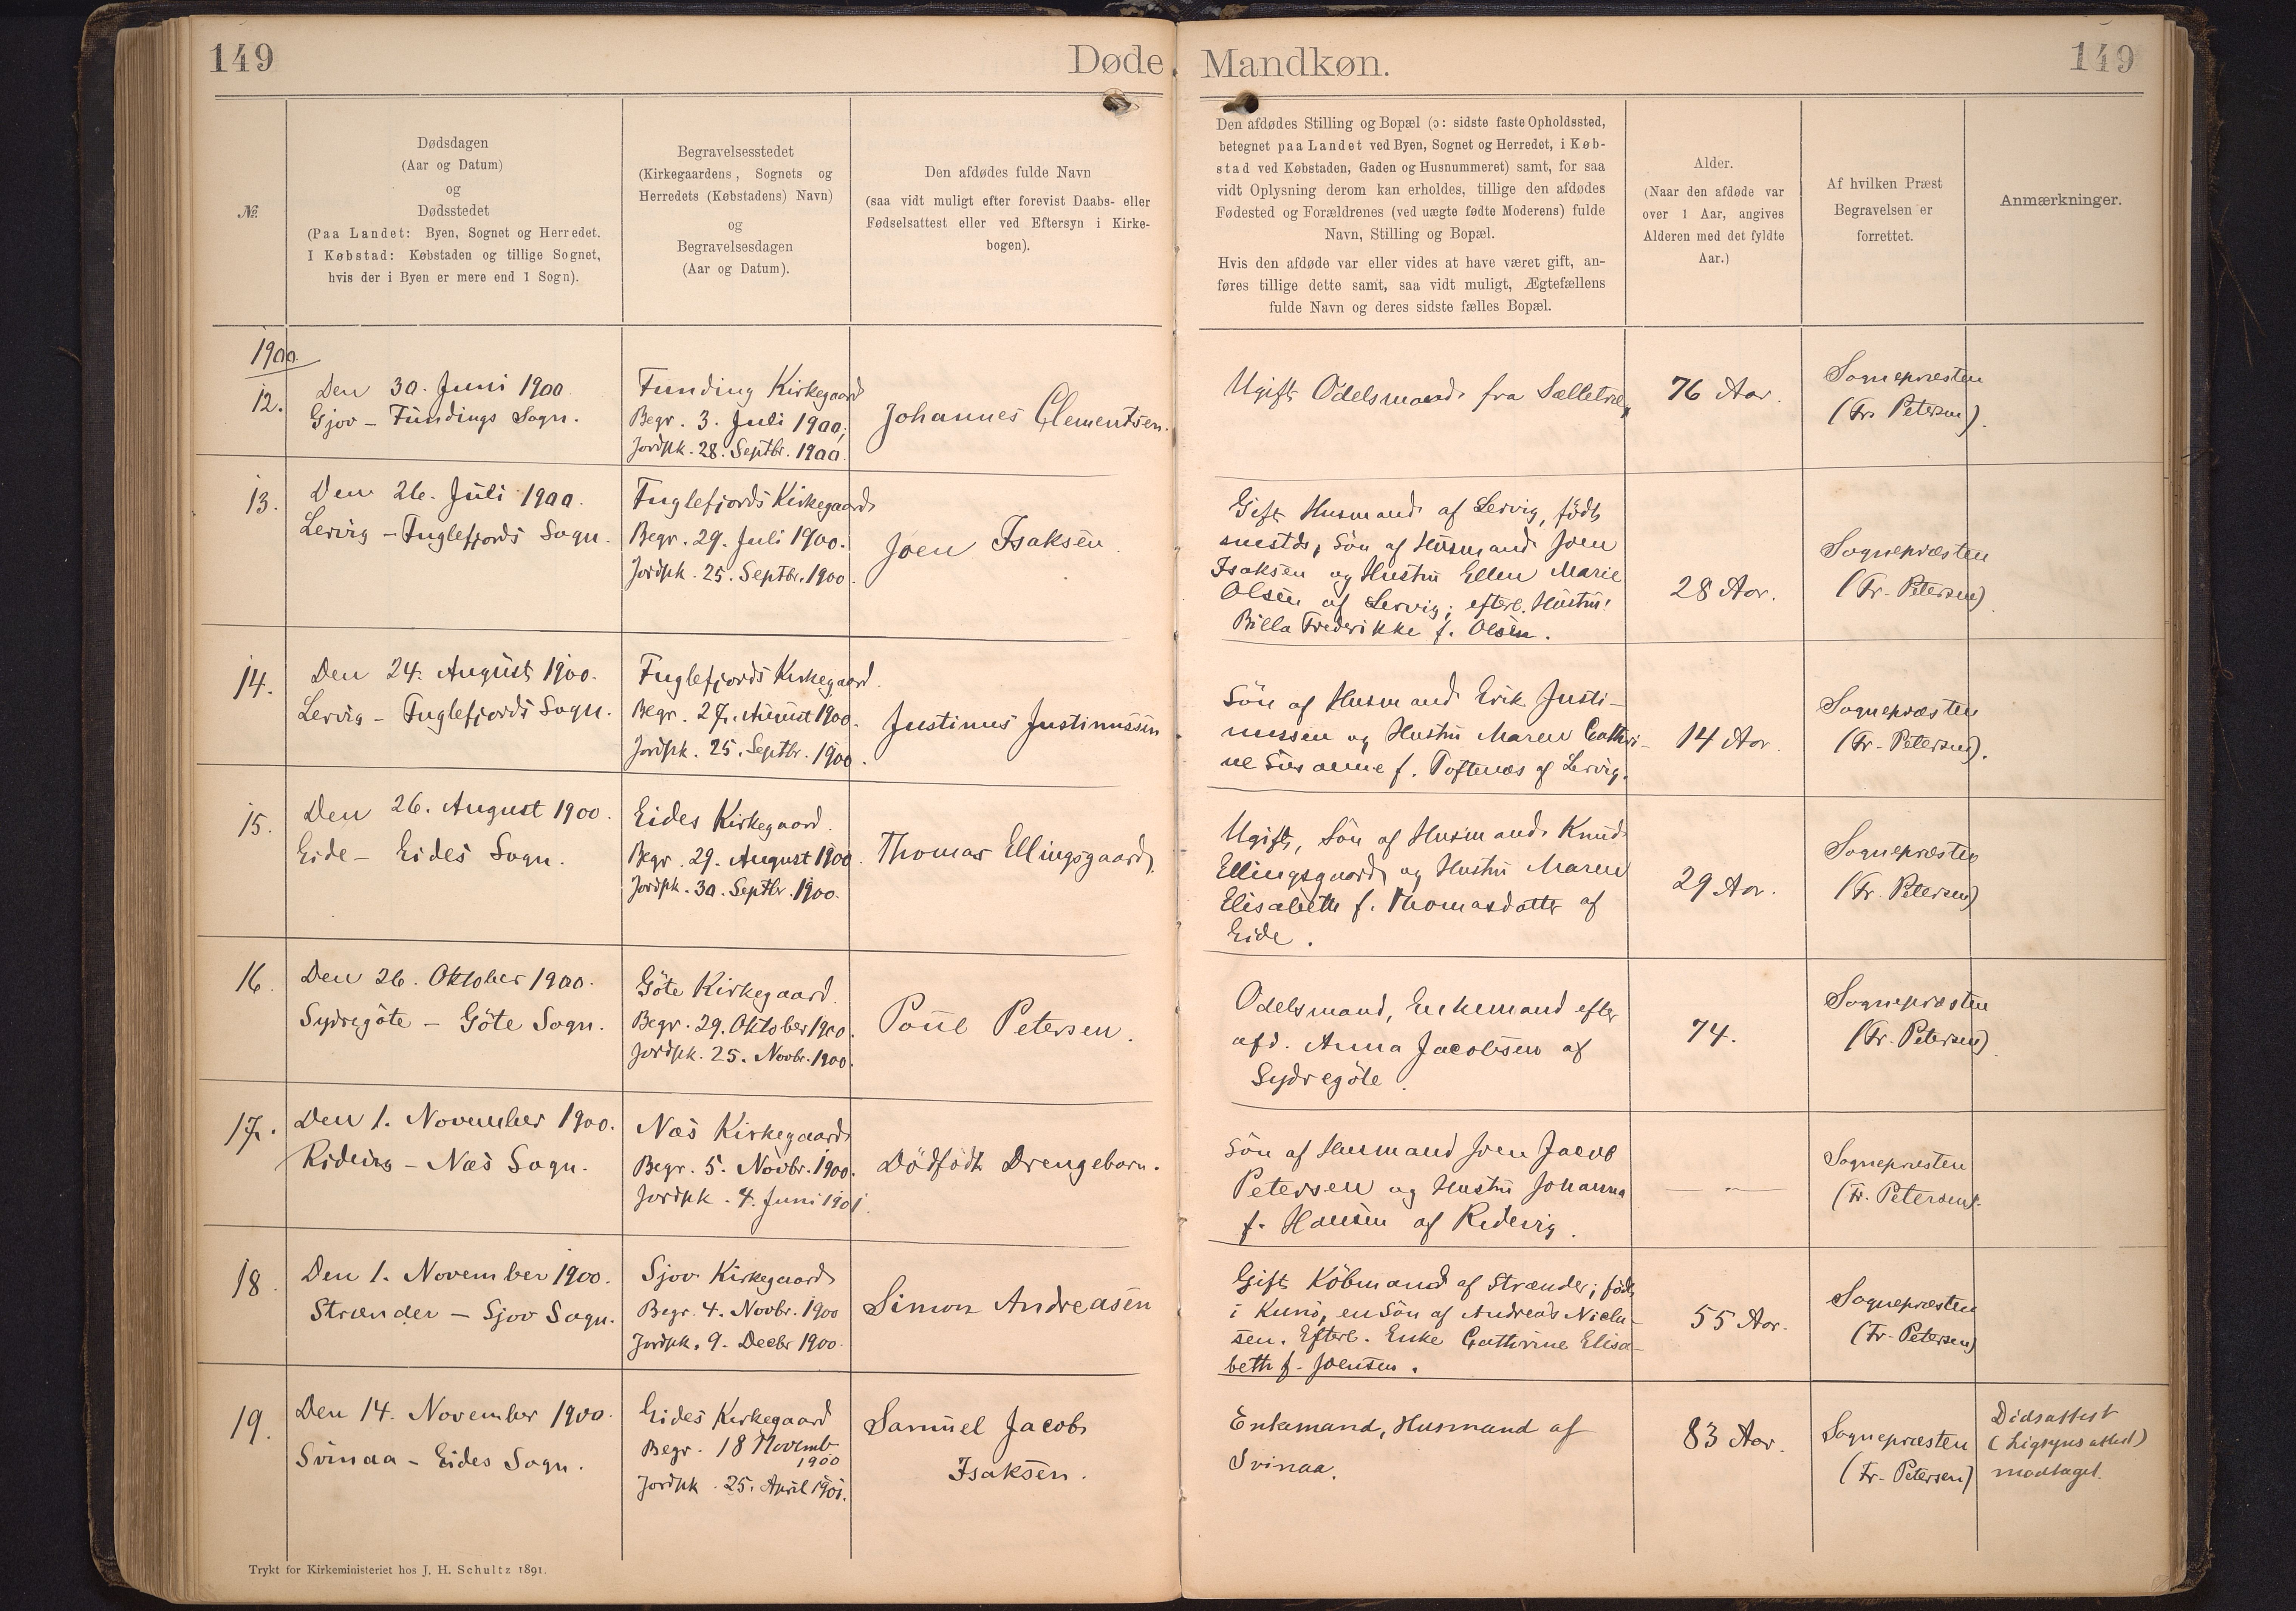 149
Døde
Mandkøn.
149
№.
Dødsdagen
(Aar og Datum)
og
Dødsstedet
(Paa Landet: Byen, Sognet og Herredet.
I Købstad: Købstaden og tillige Sognet,
hvis der i Byen er mere end 1 Sogn).
Begravelsesstedet
(Kirkegaardens, Sognets og
Herredets (Købstadens) Navn)
og
Begravelsesdagen
(Aar og Datum).
Den afdødes fulde Navn
(saa vidt muligt efter forevist Daabs- eller
Fødselsattest eller ved Eftersyn i Kirke-
bogen).
Den afdødes Stilling og Bopæl (ɔ: sidste faste Opholdssted,
betegnet paa Landet ved Byen, Sognet og Herredet, i Køb-
stad ved Købstaden, Gaden og Husnummeret) samt, for saa
vidt Oplysning derom kan erholdes, tillige den afdødes
Fødested og Forældrenes (ved uægte fødte Moderens) fulde
Navn, Stilling og Bopæl.
Hvis den afdøde var eller vides at have været gift, an-
føres tillige dette samt, saa vidt muligt, Ægtefællens
fulde Navn og deres sidste fælles Bopæl.
Alder.
(Naar den afdøde var
over 1 Aar, angives
Alderen med det fyldte
Aar.)
Af hvilken Præst
Begravelsen er
forrettet.
Anmærkninger.
1900
12.
Den 30. Juni 1900
Gjov – Fundings Sogn.
Funding Kirkegaard
Begr. 3. Juli 1900;
Jordpk. 28. Septbr. 1900.
Johannes Clementsen.
Ugift Odelsmand fra
76 Aar.
Sognepræsten
(Fr. Petersen).
13.
Den 26. Juli 1900.
Lervig – Fuglefjords Sogn.
Fuglefjords Kirkegaard
Begr. 29. Juli 1900.
Jordpk. 25. Septbr. 1900.
Joen Isaksen.
Gift Husmand af Lervig, født
smstds, Søn af Husmand Joen
Isaksen og Hustru Ellen Marie
Olsen af Lervig; efterl. Hustru:
Billa Frederikke f. Olsen.
28 Aar.
Sognepræsten
(Fr. Petersen).
14.
Den 24. August 1900.
Lervig – Fuglefjords Sogn.
Fuglefjords Kirkegaard.
Begr. 27. August 1900.
Jordpk. 25. Septbr. 1900.
Justinus Justinussen
Søn af Husmand Erik Justi-
nussen og Hustru Maren Cathri-
ne Susanne f. Toftenæs af Lervig.
14 Aar.
Sognepræsten
(Fr. Petersen).
15.
Den 26. August 1900.
Eide – Eides Sogn.
Eides Kirkegaard.
Begr. 29. August 1900.
Jordpk. 30. Septbr. 1900.
Thomas Ellingsgaard.
Ugift, Søn af Husmand Knud
Ellingsgaard og Hustru Maren
Elisabeth f. Thomasdatter af
Eide.
29 Aar.
Sognepræsten
(Fr. Petersen)
16.
Den 26. Oktober 1900.
Sydregöte – Göte Sogn.
Göte Kirkegaard.
Begr. 29. Oktober 1900.
Jordpk. 25. Novbr. 1900.
Poul Petersen.
Odelsmand, Enkemand efter
afd. Anna Jacobsen af
Sydregöte.
74.
Sognepræsten
(Fr. Petersen).
17.
Den 1. November 1900.
Ridevig – Næs Sogn.
Næs Kirkegaard
Begr. 5. Novbr. 1900.
Jordpk. 4. Juni 1901.
Dödfödt Drengebarn.
Søn af Husmand Joen Jacob
Petersen og Hustru Johanna
f. Hansen af Ridevig.
— " —
Sognepræsten
(Fr. Petersen).
18
Den 1. November 1900.
Strænder – Sjov Sogn.
Sjov Kirkegaard
Begr. 4. Novbr. 1900
Jordpk. 9. Decbr 1900.
Simon Andreasen
Gift Købmand af Strænder; født
i Kunö, en Søn af Andreas Niclas-
sen. Efterl. Enke Cathrine Elisa-
beth f. Joensen.
55 Aar.
Sognepræsten
(Fr. Petersen)
19.
Den 14. November 1900.
Svinaa – Eides Sogn.
Eides Kirkegaard
Begr. 18 Novemb
1900
Jordpk. 25. April 1901.
Samuel Jacob
Isaksen.
Enkemand, Husmand af
Svinaa.
83 Aar.
Sognepræsten
(Fr. Petersen)
Dödsattest
(Ligsynsattest)
modtaget.
Trykt for Kirkeministeriet hos J. H. Schultz 1891.